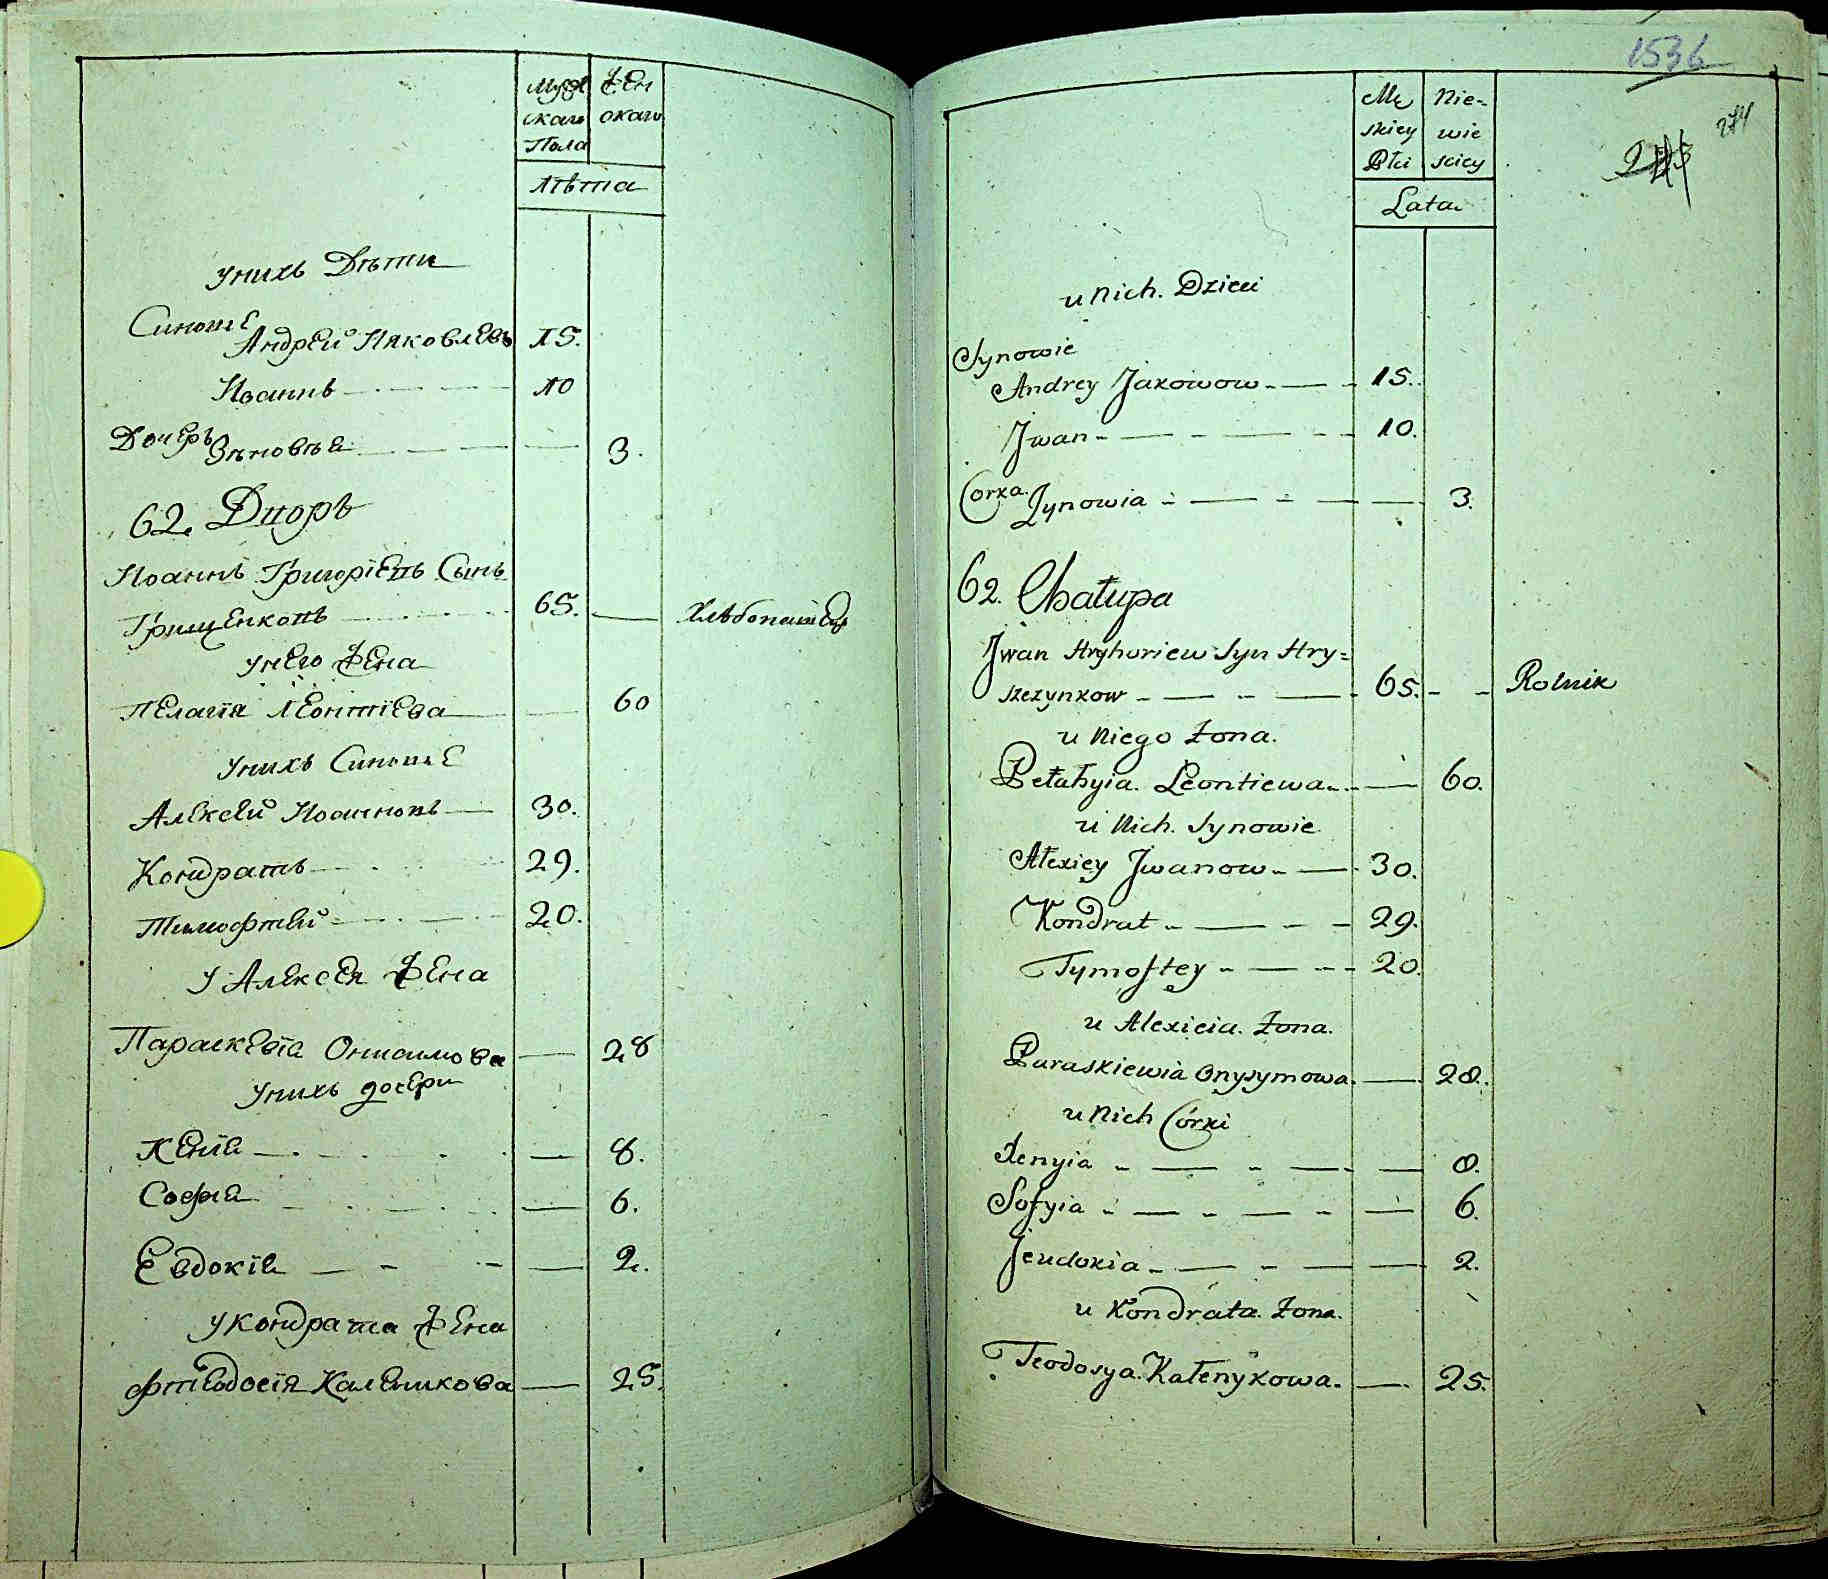 Муж Жен
скаго скаго
Пола
лѣта
у нихъ Дѣти
Синове
Андрей Иаковлевъ 15.
Иоаннъ 10
Дочерь Зѣновѣа 3.
62. Дворъ
Иоаннъ Григорїевъ Сынъ
Грищенковъ 65. Хлѣбопашецъ
у него Жена
Пелагїя Леонтїева 60
у нихъ Синове
Алексей Иоанновъ 30.
Кондратъ 29.
Тимофтей 20.
у Алексея Жена
Параскевїа Онисимова 28
у нихъ дочери
Ксенїа 8.
Софиа 6.
Евдокїа 2.
у Кондрата Жена
Фтеодосїя Каленикова 25.
1536
274
Mę Nie=
skiey wie
Płci sciey
Lata
u Nich. Dzieci
Synowie
Andrey Jakowow 15.
Jwan 10.
Corka Zynowia 3.
62. Chałupa
Jwan Hryhoriew Syn Hry=
szczynkow 65. Rolnik
u Niego Żona.
Pełahyia. Leontiewa 60.
u Nich. Synowie
Alexiey Jwanow 30.
Kondrat 29.
Tymoftey 20.
u Alexieia. Żona.
Paraskiewia Onysymowa. 28.
u Nich Córki
Xenyia 8.
Sofyia 6.
Jeudokia 2.
u Kondrata. Żona.
Teodosya. Kałenykowa. 25.